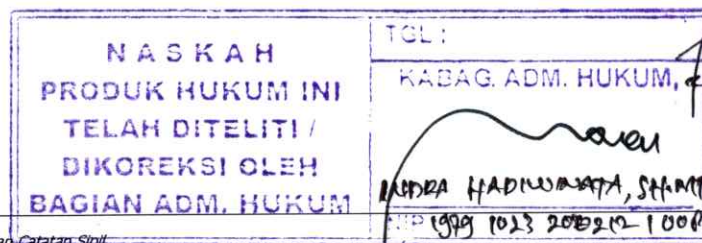 NASKAH
PRODUK HUKUM INI
TELAH DITELITI /
DIKOREKSI OLEH
BAGIAN ADM. HUKUM
TGL :
KABAG. ADM. HUKUM,
INDRA HADIWINATA, SH.MT
NIP 1979 1023 200212 1 00
Catatan Sipil